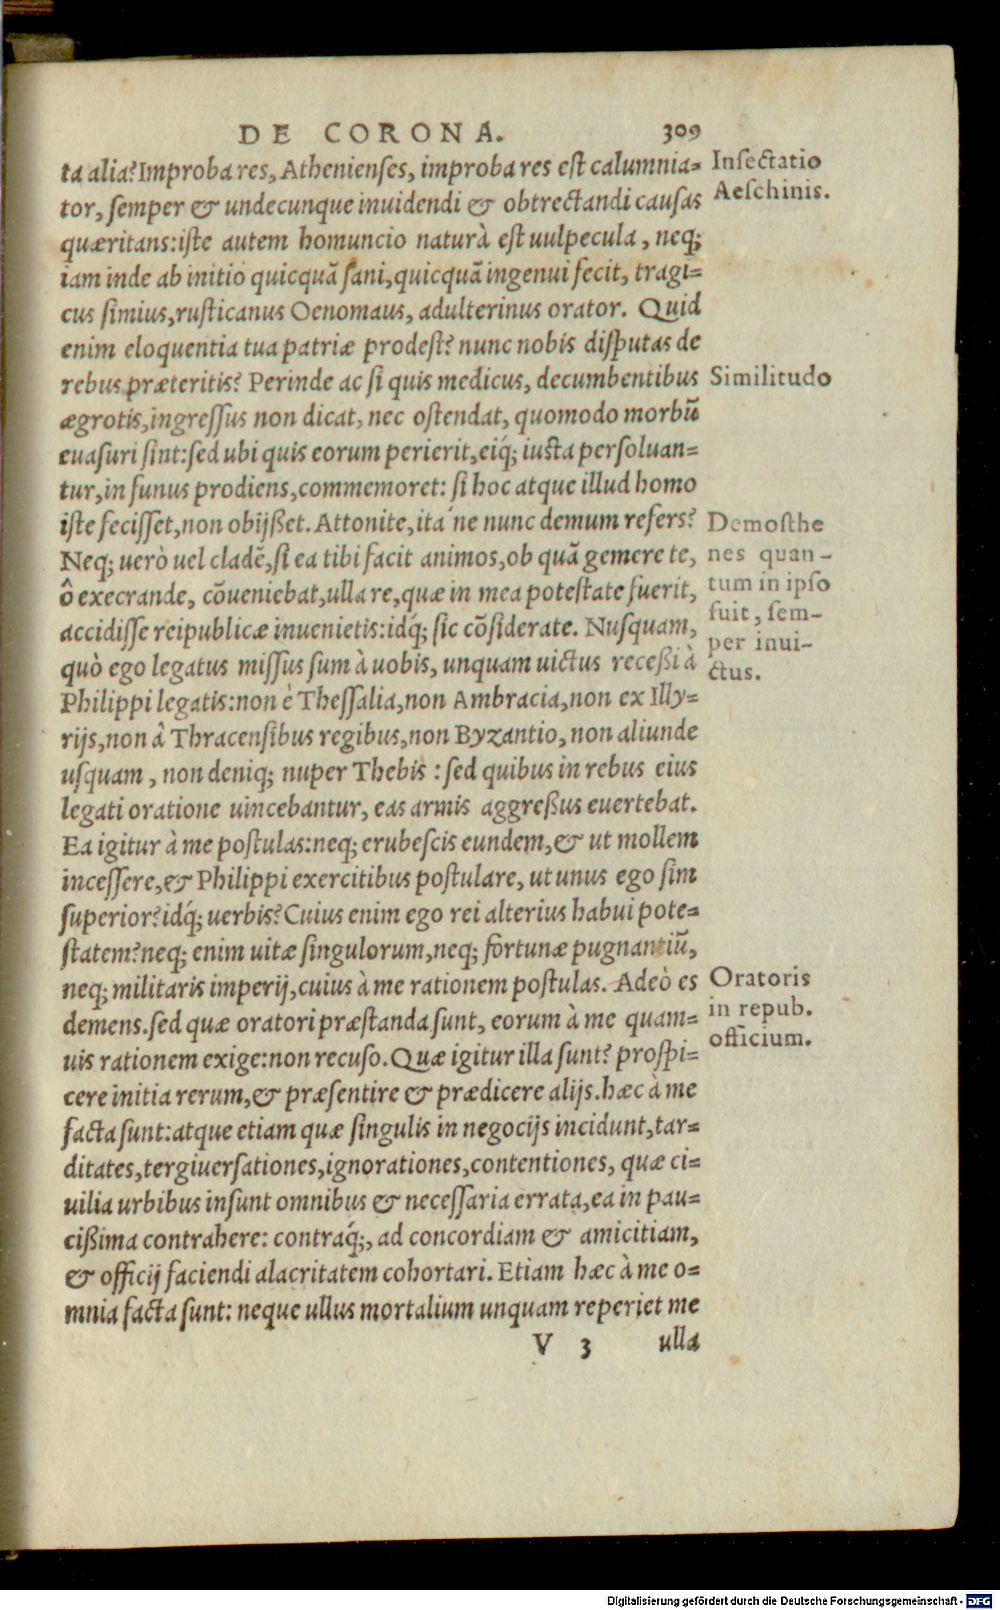 DE CORONA. 309
ta alia? Improba res, Athenienses, improba res est calumnia-
tor, semper & undecunque inuidendi & obtrectandi causas
quæritans: iste autem homuncio naturà est uulpecula, neq;
iam inde ab initio quicquã sani, quicquã ingenui fecit, tragi-
cus simius, rusticanus Oenomaus, adulterinus orator. Quid
enim eloquentia tua patriæ prodest? nunc nobis disputas de
rebus præteritis? Perinde ac si quis medicus, decumbentibus
ægrotis, ingressus non dicat, nec ostendat, quomodo morbũ
euasuri sint: sed ubi quis eorum perierit, eiq́; iusta persoluan-
tur, in funus prodiens, commemoret: si hoc atque illud homo
iste fecisset, non obijßet. Attonite, ita´ne nunc demum refers?
Neq; uerò uel cladẽ, si ea tibi facit animos, ob quã gemere te,
ô execrande, cõueniebat, ulla re, quæ in mea potestate fuerit,
accidisse reipublicæ inuenietis: idq́; sic cõsiderate. Nusquam,
quò ego legatus missus sum à uobis, unquam uictus receßi à
Philippi legatis: non è Thessalia, non Ambracia, non ex Illy-
rijs, non à Thracensibus regibus, non Byzantio, non aliunde
usquam, non deniq; nuper Thebis: sed quibus in rebus eius
legati oratione uincebantur, eas armis aggreßus euertebat.
Ea igitur à me postulas: neq; erubescis eundem, & ut mollem
incessere, & Philippi exercitibus postulare, ut unus ego sim
superior? idq́; uerbis? Cuius enim ego rei alterius habui pote-
statem? neq; enim uitæ singulorum, neq; fortunæ pugnantiũ,
neq; militaris imperij, cuius à me rationem postulas. Adeò es
demens. sed quæ oratori præstanda sunt, eorum à me quam-
uis rationem exige: non recuso. Quæ igitur illa sunt? prospi-
cere initia rerum, & præsentire & prædicere alijs. hæc à me
facta sunt: atque etiam quæ singulis in negocijs incidunt, tar-
ditates, tergiuersationes, ignorationes, contentiones, quæ ci-
uilia urbibus insunt omnibus & necessaria errata, ea in pau-
cißima contrahere: contraq́;, ad concordiam & amicitiam,
& officij faciendi alacritatem cohortari. Etiam hæc à me o-
mnia facta sunt: neque ullus mortalium unquam reperiet me
V 3 ulla
Insectatio
Aeschinis.
Similitudo
Demosthe
nes quan-
tum in ipso
fuit, sem-
per inui-
ctus.
Oratoris
in repub.
officium.
Digitalisierung gefördert durch die Deutsche Forschungsgemeinschaft - DFG